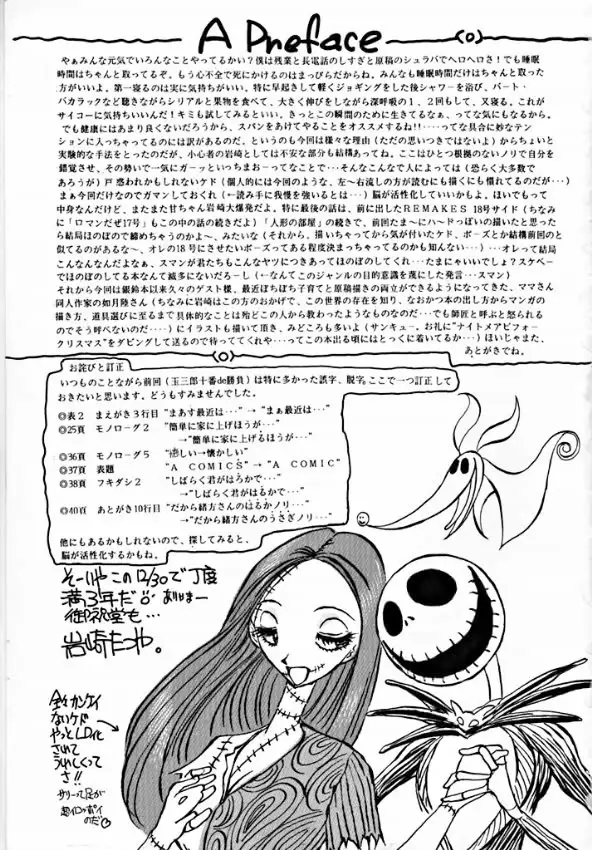 A Preface
やぁみんな元気でいろんなことやってるかい？僕は残業と長電話のしすぎと原稿のシュラバでヘロヘロさ！でも睡眠
時間はちゃんと取ってるぞ。もう心不全で死にかけるのはまっぴらだからね。みんなも睡眠時間だけはちゃんと取った
方がいいよ。第一寝るのは実に気持がいい。特に早起きして軽くジョギングをした後シャワーを浴び、バート・
バカラックなど聴きながらシリアルと果物を食べて、大きく伸びをしながら深呼吸の１、２回もして、又寝る。これが
サイコーに気持ちいいんだ！キミも試してみるといい。きっとこの瞬間のために生きてるなぁ、ってな気にもなるから。
でも健康にはあまり良くないだろうから、スパンをあけてやることをオススメするね！！････って な具合に妙なテン
ションに入っちゃってるのには訳があるのだ。というのも今回は様々な理由（ただの思いつきではないよ）からちょいと
実験的な手法をとったのだが、小心者の岩崎としては不安な部分も結構あってね。ここはひとつ根拠のないノリで自分を
錯覚させ、その勢いで一気にガーッといっちまおーってなことで････そんなこんなで人によっては（恐らく大多数で
あろうが）戸惑われかもしれないケド（個人的には今回のような、左～右流しの方が読むにも描くにも慣れてるのだが･･･）
まぁ今回だけなのでガマンしておくれ（←読み手に我慢を強いるとは････）脳が活性化していいかもよ。ほいでもって
中身なんだけど、またまた甘ちゃん岩崎大爆発だよ。特に最後の話は、前に出したＲＥＭＡＫＥＳ 18号サイド（ちなみ
に「ロマンだぜ17号」もこの中の話の続きだよ）「人形の部屋」の続きで、前回たま～にハードっぽいの描いたと思った
ら結局ほのぼので締めちゃうのかよ～、みたいな（それから、描いちゃってから気が付いたケド、ポーズとか結構前回のと
似てるのがあるな～ オレの18号にさせたいポーズってある程度決まっちゃってるのかも知んない････）･･･オレって結局
こんなんなんだよなぁ、スマンが君たちもこんなヤツにつきあってほのぼのしてくれ････たまにゃいいでしょ？スケベー
でほのぼのしてる本なんて滅多にないだろーし（←なんてこのジャンルの目的意識を蔑にした発言････スマン）
それから今回は銀鈴本以来久々のゲスト様、最近ぼちぼち子育てと原稿描きの両立ができるようになってきた、ママさん
同人作家の如月陸さん（ちなみに岩崎はこの方のおかげで、この世界の存在を知り、なおかつ本の出し方からマンガの
描き方、道具選びに至るまで具体的なことは殆どこの人から教わったようなものなのだ････でも師匠と呼ぶと怒られる
のでそう呼べないのだ････）にイラストも描いて頂き、みどころも多いよ（サンキュー。お礼に“ナイトメアビフォー
クリスマス”をダビングして送るので待っててくれや････ってこの本出る頃にはとっくに着いてるか････）ほいじゃまた、
あとがきでね。
お詫びと訂正
いつものことながら前回（玉三郎十番de勝負）は特に多かった誤字、脱字。ここで一つ訂正して
おきたいと思います。どうもすみませんでした。
◎表２ まえがき３行目 “まあす最近は･･･” → “まぁ最近は･･･”
◎25頁 モノローグ２ “簡単に家に上げほうが･･･”
→“簡単に家に上げるほうが･･･”
◎36頁 モノローグ５
→懐かしい”
◎37頁 表題 “Ａ ＣＯＭＩＣＳ” → “Ａ ＣＯＭＩＣ”
◎38頁 フキダシ２ “しばらく君がはろかで･･･”
→“しばらく君がはるかで･･･”
◎40頁 あとがき10行目 “だから緒方さんのはるかノリ･･･”
→“だから緒方さんのうさぎノリ･･･”
他にもあるかもしれないので、探してみると、
脳が活性化するかもね。
そーいやこの12/30で丁度
満3年だ
御祝堂も…
岩崎たつや。
全々カンケイ
ないケド
やっとLD化
されて
うれしくって
さ!!
サリーって足が
超イロッポイ
のだ♡